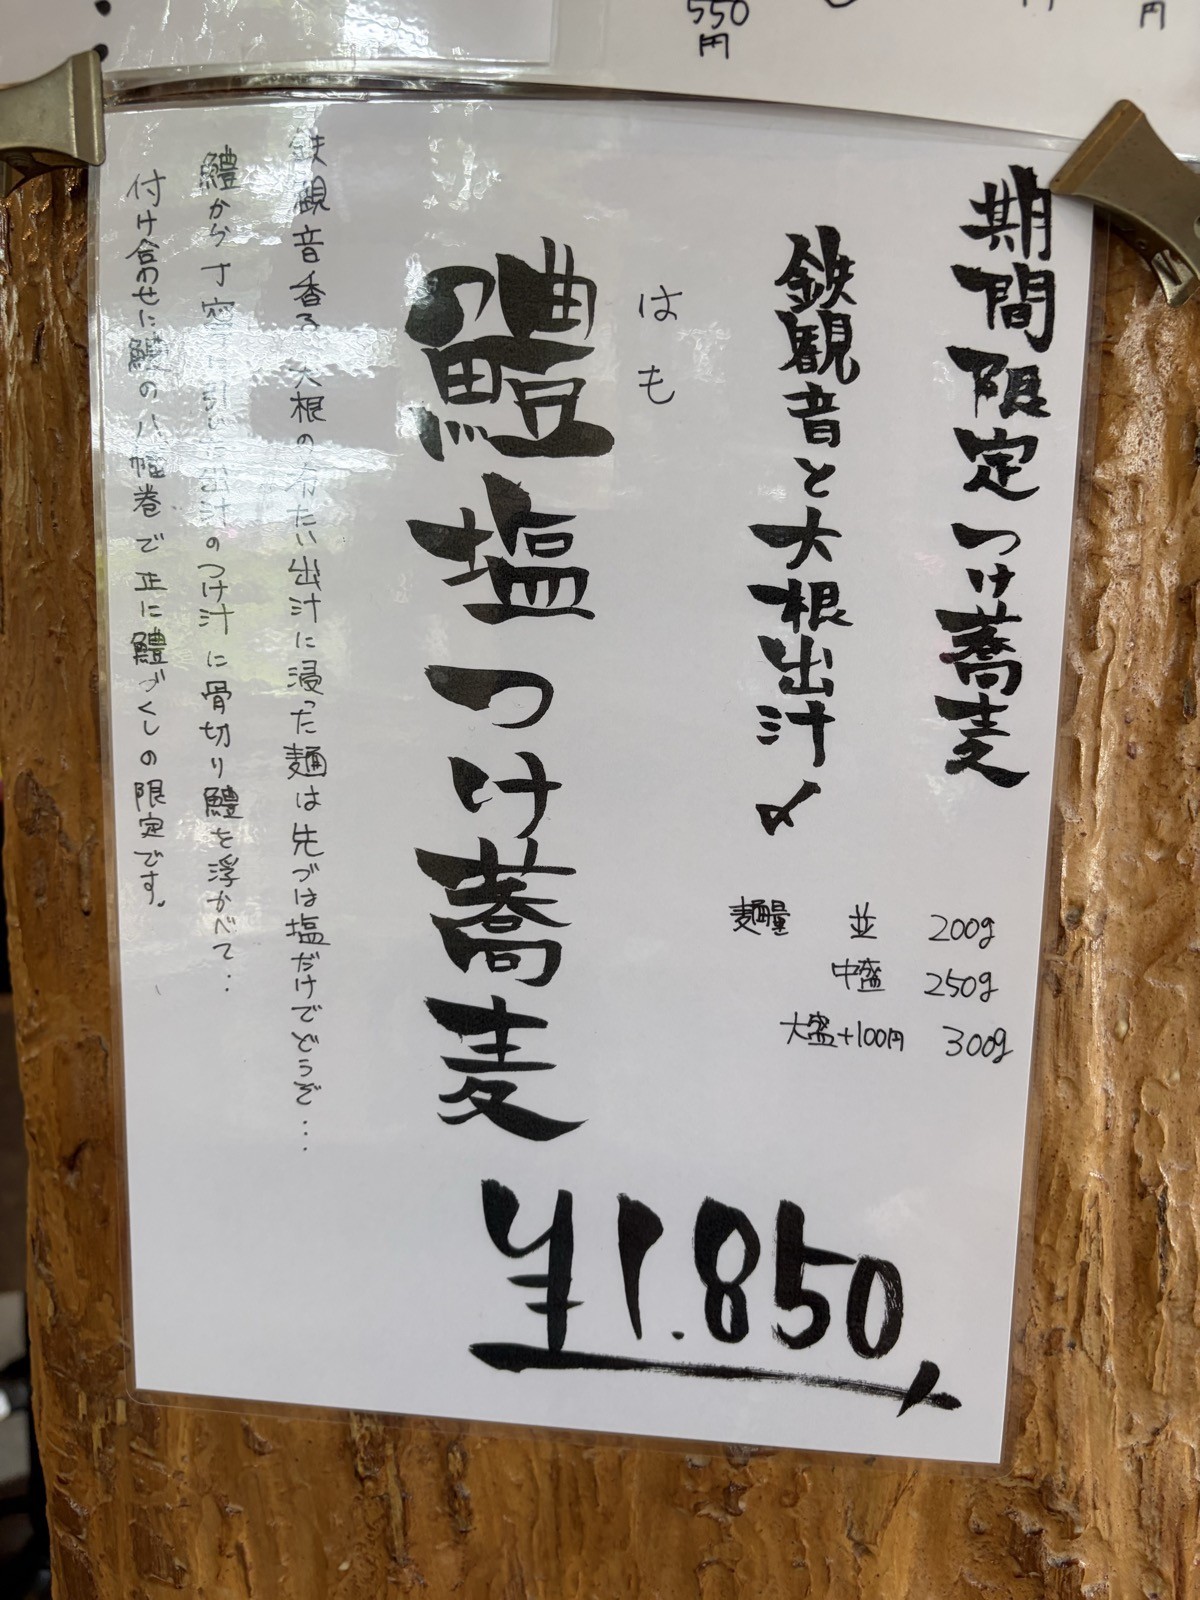 550
円
円
期間限定つけ蕎麦
鉄観音と大根出汁〆
麺量 並 200g
中盛 250g
大盛+100円 300g
はも
鱧塩つけ蕎麦
¥1.850
鉄観音香る大根の冷たい出汁に浸った麺は先づは塩だけでどうぞ…
鱧から丁寧に引いた出汁のつけ汁に骨切り鱧を浮かべて…
付け合わせに鱧の八幡巻で正に鱧づくしの限定です。